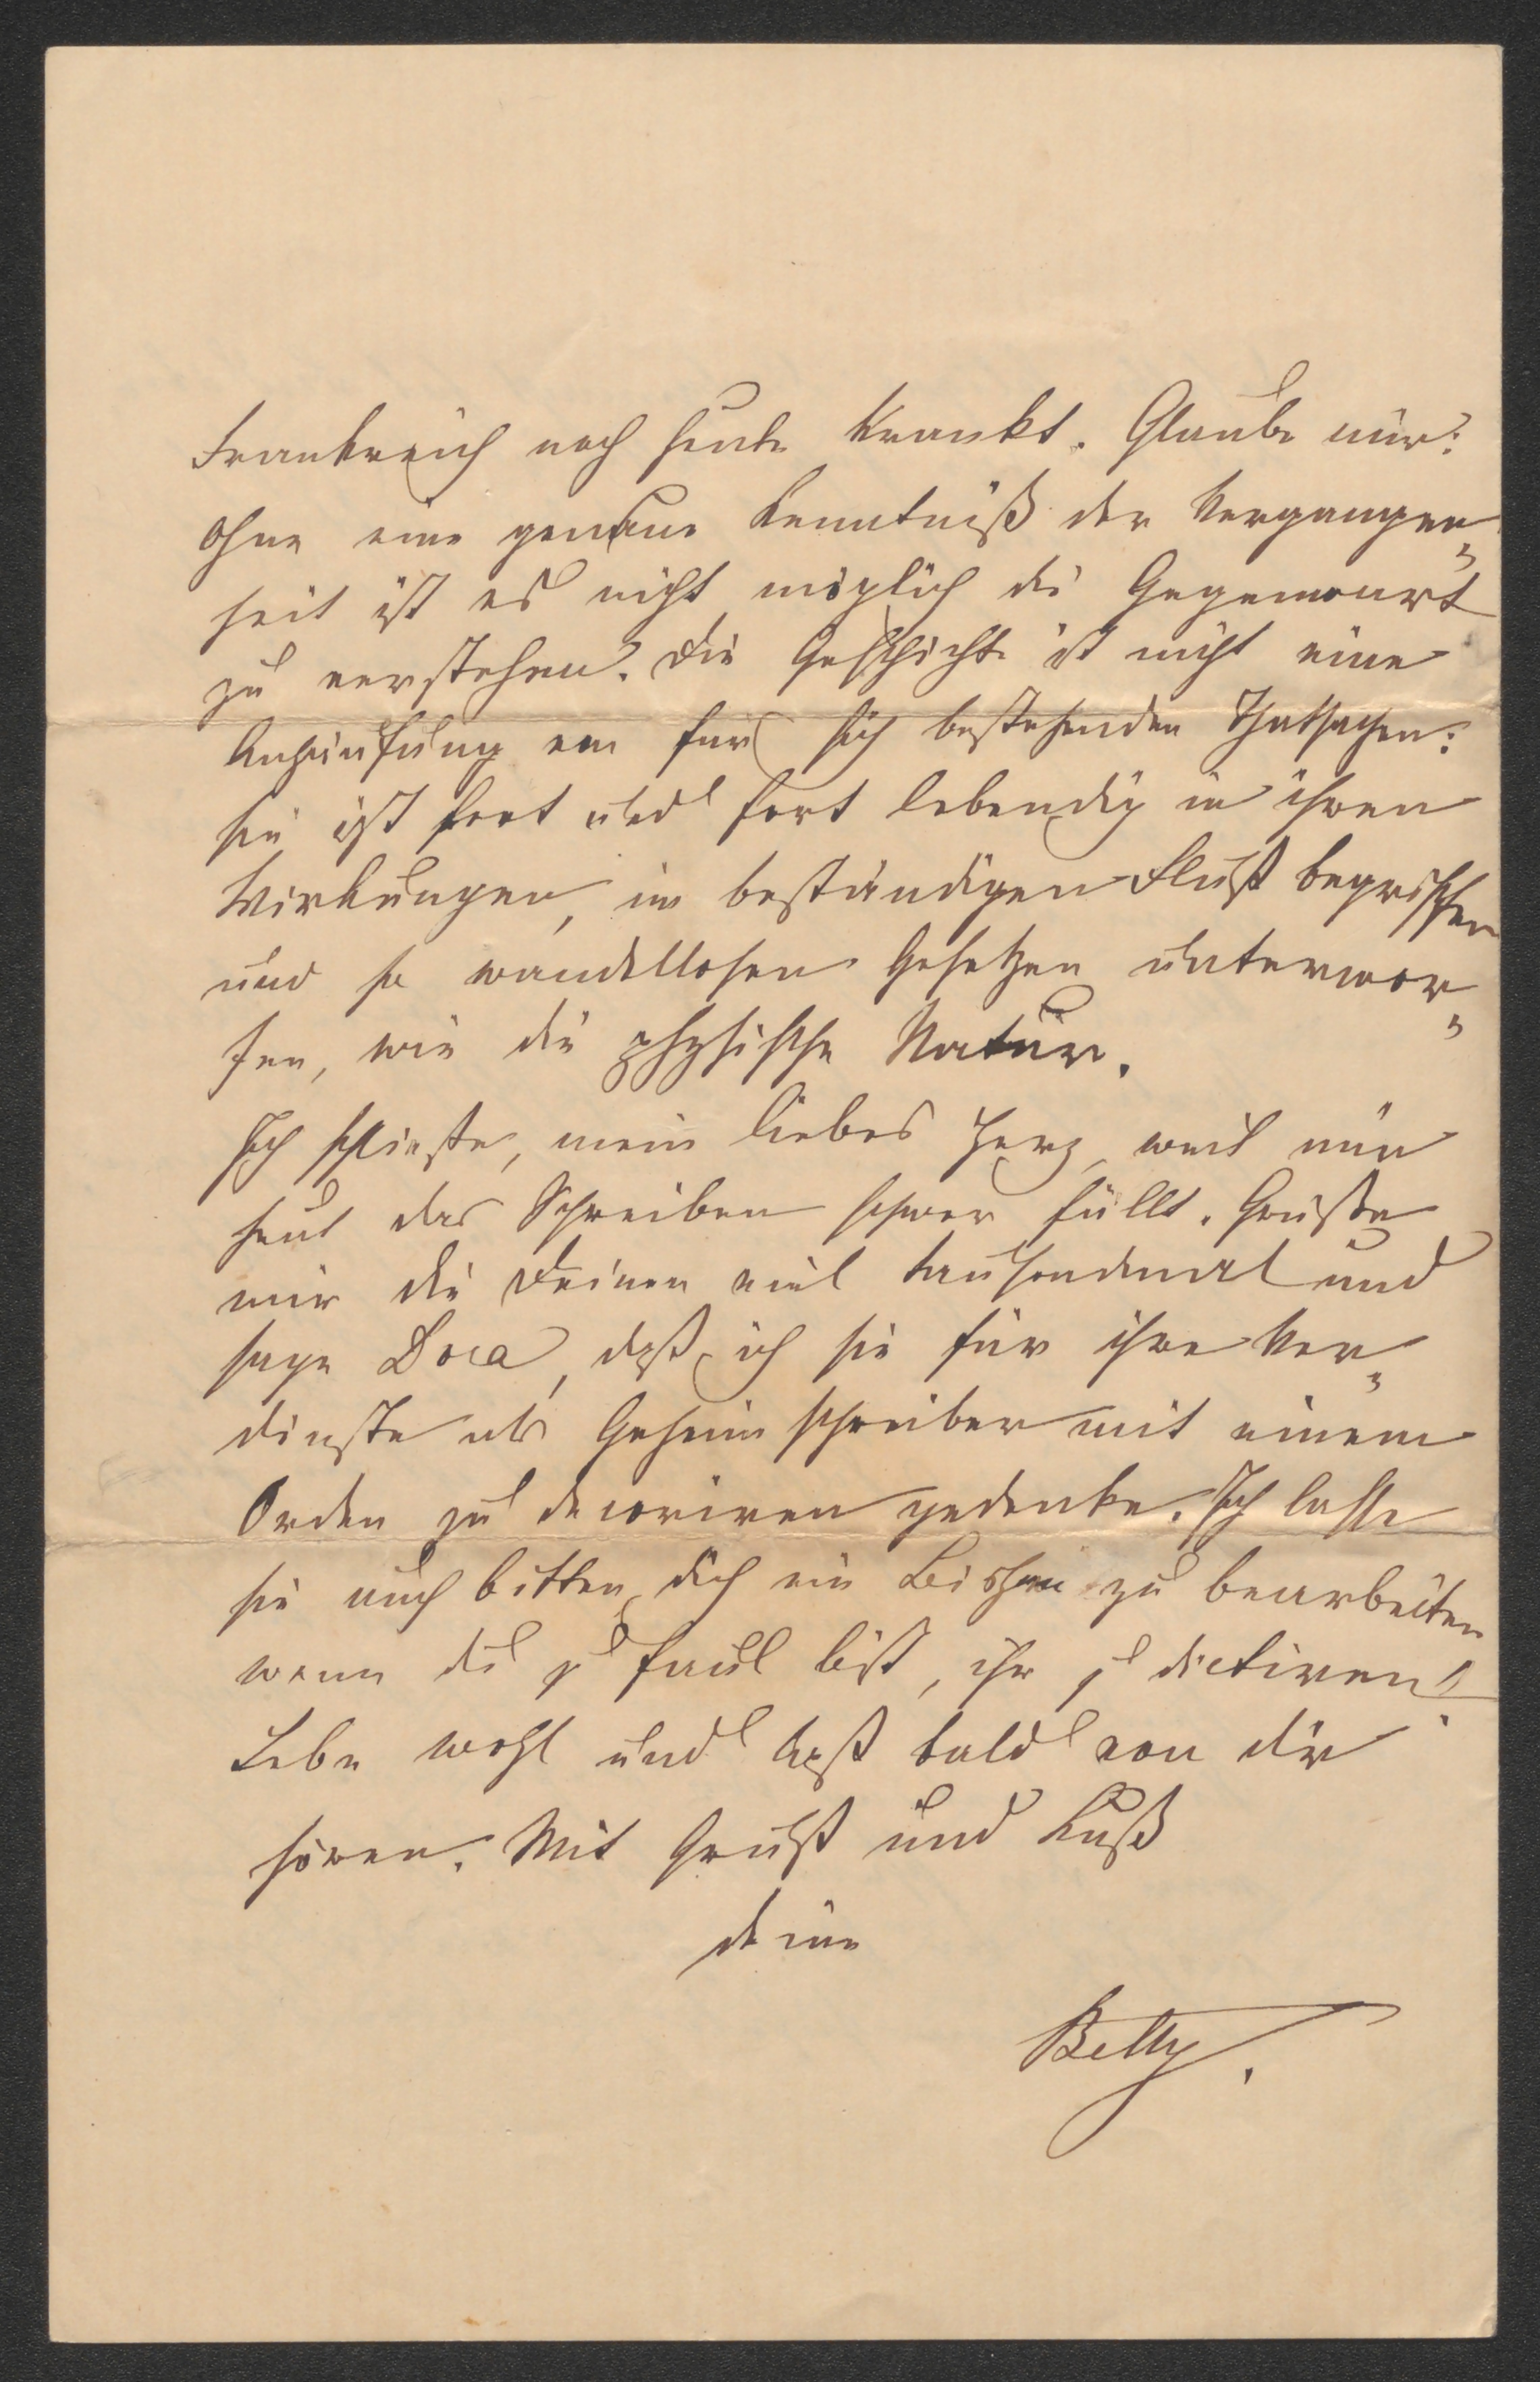 Frankreich noch heute krankt. Glaube mir:
ohne eine genaue Kenntniß der Vergangen-
heit ist es nicht möglich die Gegenwart
zu verstehen. Die Geschichte ist nicht eine
Anhäufung von für sich bestehenden Thatsachen:
sie ist fort und fort lebendig in ihren
Wirkungen, im beständigen Fluß begriffen
und so wandellosen Gesetzen unterwor-
fen, wie die physische Natur.
Ich schließe, mein liebes Herz, weil mir
heut das Schreiben schwer fällt. Grüße
mir die Deinen viel tausendmal und
sage Dora, daß ich sie für ihre Ver-
dienste als Geheimschreiber mit einem
Orden zu decoriren gedenke. Ich lasse
sie auch bitten, dich ein Bischen zu bearbeiten
wenn du zu faul bist, ihr zu dictiren!
Lebe wohl und laß bald von dir
hören. Mit Gruß und Kuß
deine
Betty.